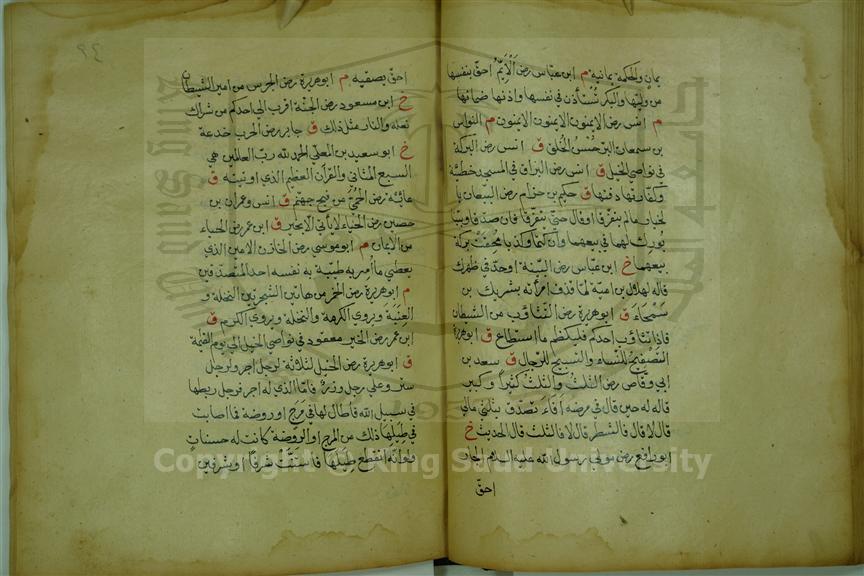 يمان والحكمة يمانية م ابن عباس رض الأيّم احق بنفسها
من وليها والبكر تستأذن في نفسها واذنها صماتها
م انس رض الايمنون الايمنون الايمنون م النواس
بن سمعان البر حسن الخلق ق انس رض البركة
في نواصي الخيل ق انس رض البزاق في المسجد خطيئة
وكفارتها دفنها ق حكيم بن حزام رض البيعان با
لخيار مالم يتفرقا او قال حتى يتفرقا فان صدقا وبينا
بورك لهما في بيعهما وان كتما وكذبا محقت بركة
بيعهما خ ابن عباس رض البينة او حد في ظهرك
قاله لهلال بن امية لما قذف امرأته بشريك بن
سحماء ق ابو هريرة رض التثاؤب من الشيطان
فاذا تثاؤب احدكم فليكظم ما استطاع ق ابو هريرة
التصفيح للنساء والتسبيح للرجال ق سعد بن
ابي وقاص رض الثلث والثلث كثير او كبير
قاله له حين قال في مرضه أفأتصدق بثلثي مالي
قال لا قال فالشطر قال لا فالثلث قال الحديث خ
ابو رافع رض مولى رسول الله عليه السلام الجار
احق
٩٤
احق بصقبه م ابو هريرة رض الجرس من امير الشيطان
خ ابن مسعود رض الجنة اقرب الى احدكم من شراك
نعله والنار مثل ذلك ق جابر رض الحرب خدعة
خ ابو سعيد بن المعلى الحمد لله رب العالمين هي
السبع المثاني والقرآن العظيم الذي اوتيته ق
عائشة رض الحمى من فيح جهنم ق انس وعمران بن
حصين رض الحياء لا يأتي الا بخير ق ابن عمر رض الحياء
من الايمان م ابو موسى رض الخازن الامين الذي
يعطي ما امر به طيبة به نفسه احد المتصدقين
م ابو هريرة رض الخمر من هاتين الشجرتين النخلة و
العنبة ويروى الكرمة والنخلة ويروى الكرم ق
ابن عمر رض الخير معقود في نواصي الخيل الى يوم القيمة
ق ابو هريرة رض الخيل لثلاثة لرجل اجر ولرجل
ستر وعلى رجل وزر فاما الذي له اجر فرجل ربطها
في سبيل الله فأطال لها في مرج او روضة فما اصابت
في طيلها ذلك من المرج او الروضة كانت له حسنات
ولو انه انقطع طيلها فاستنت شرفا او شرفين
Copyright © King Saud University